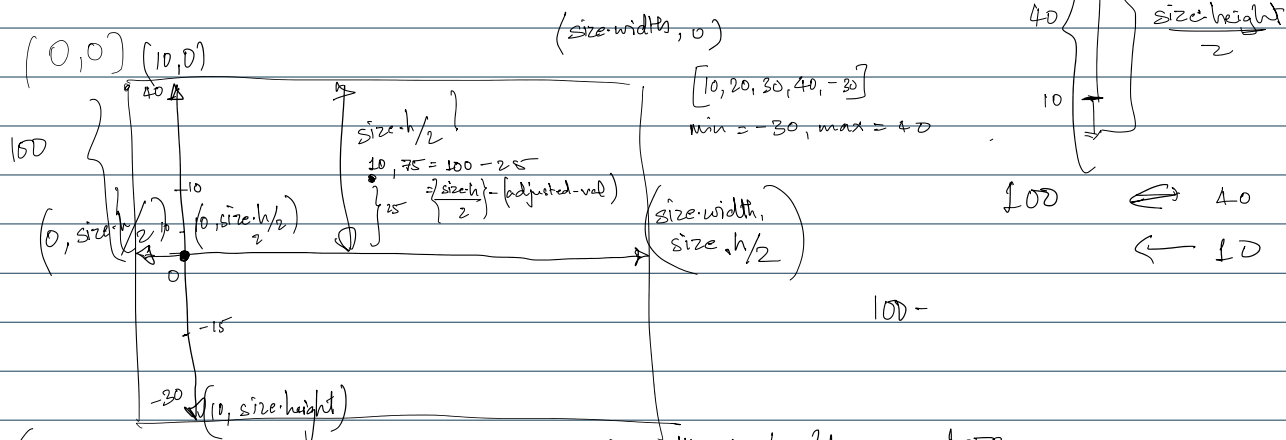 (size.width, 0)
40
size.height
2
(0,0) (10,0)
40
[10, 20, 30, 40, -30]
10
min = -30, max = 40
100
size.h/2
10, 75 = 100 - 25
10
25
= {size.h} - (adjusted-val)
2
100
40
(0, size.h/2)
10
(0, size.h/2)
2
(size.width,
size.h/2)
10
0
100 -
-15
-30
(10, size.height)